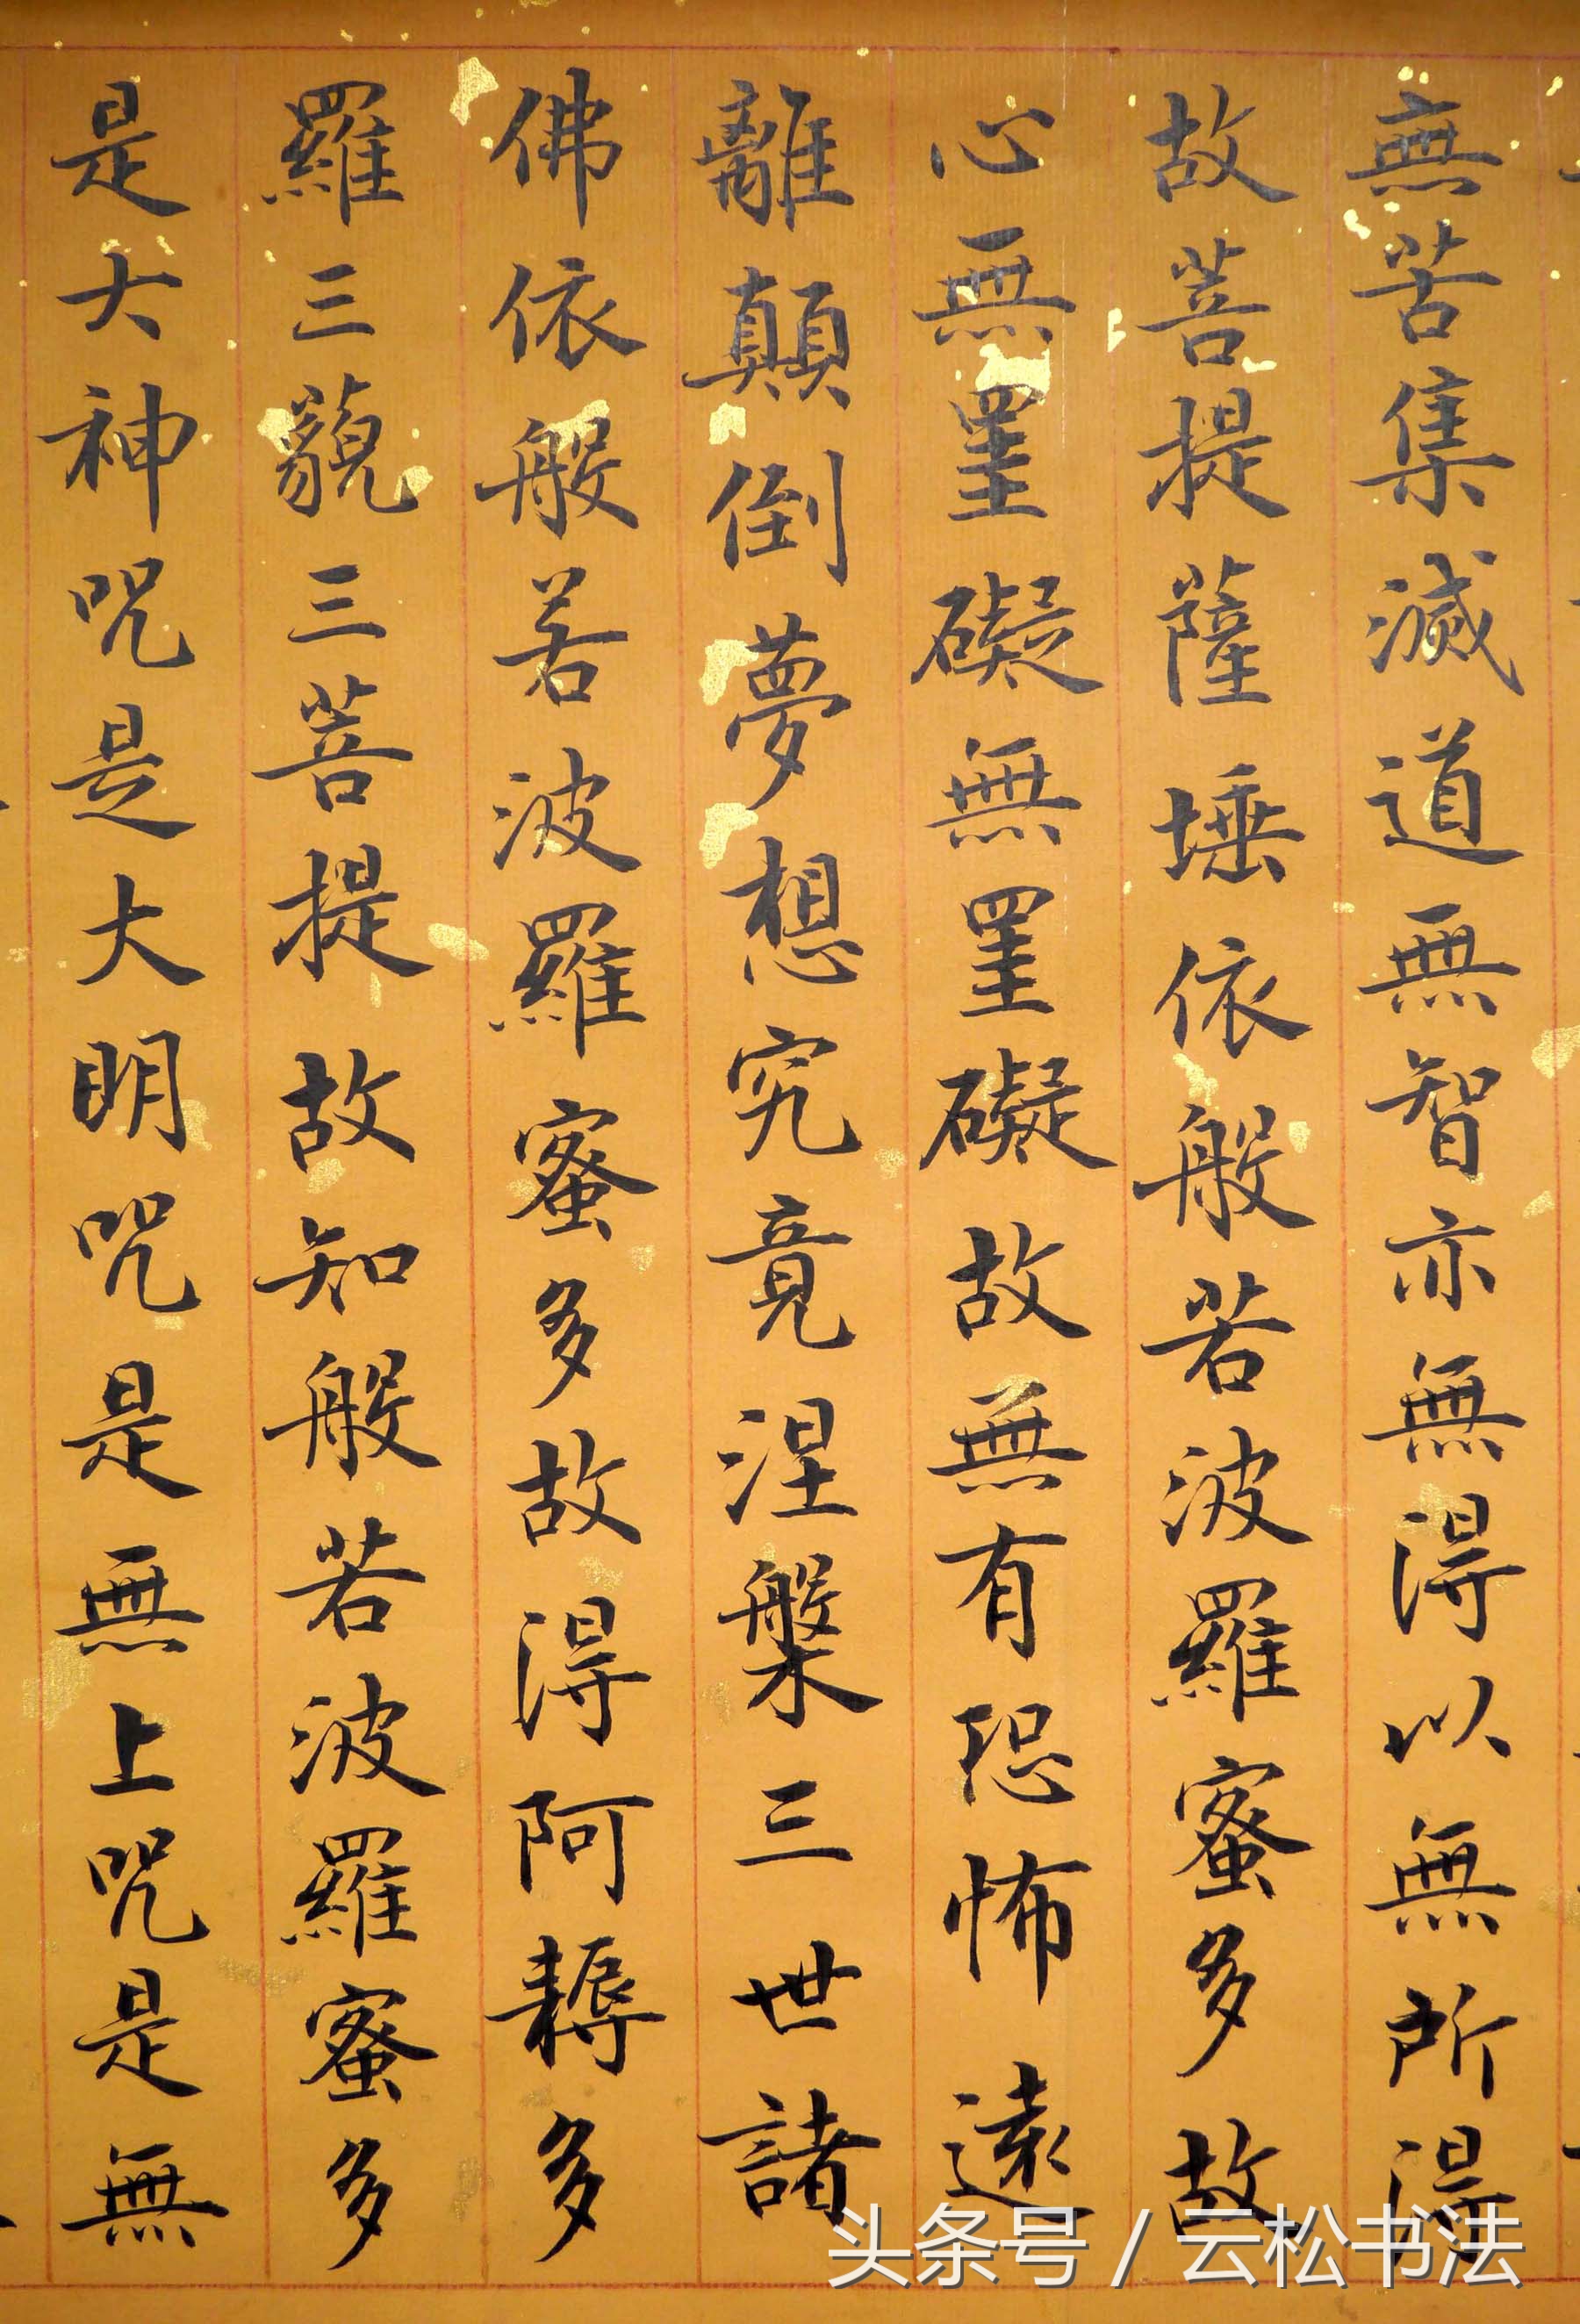 無苦集滅道無智亦無得以無所得
故菩提薩埵依般若波羅蜜多故
心無罣礙無罣礙故無有恐怖遠
離顛倒夢想究竟涅槃三世諸
佛依般若波羅蜜多故得阿耨多
羅三藐三菩提故知般若波羅蜜多
是大神咒是大明咒是無上咒是無
头条号 / 云松书法